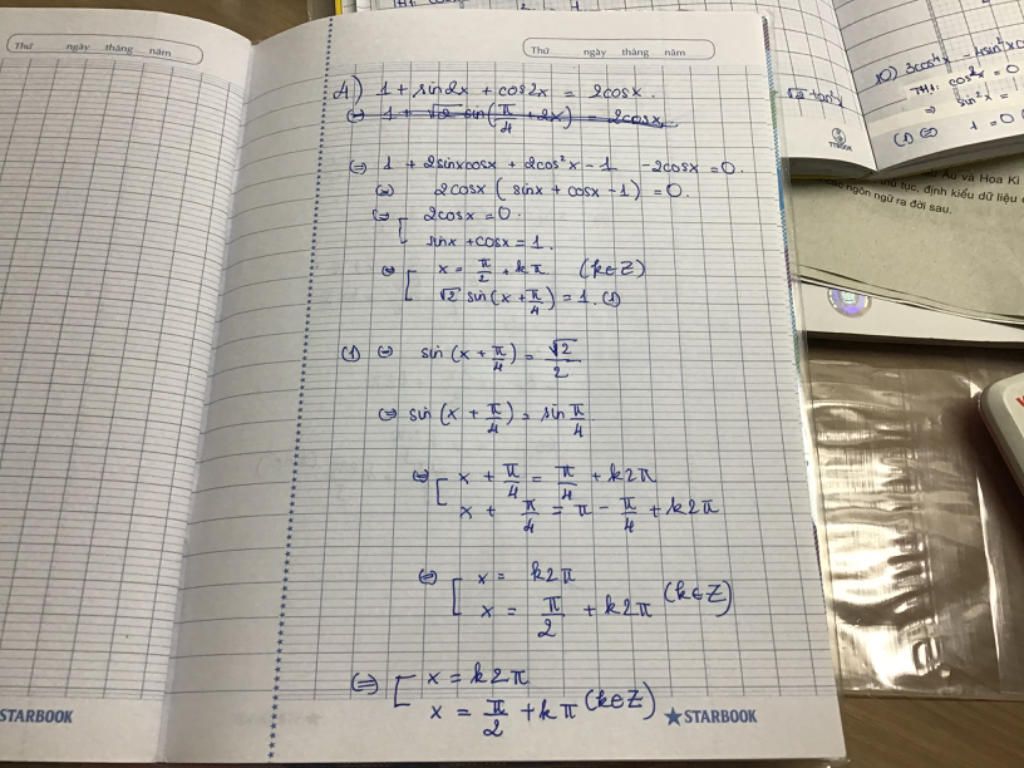 Thứ ngày tháng năm
Thứ ngày tháng năm
A) 1 + sin2x + cos2x = 2cosx.
(=) 1 + √2 sin(π/4 + 2x) = 2cosx
(=) 1 + 2sinxcosx + 2cos²x - 1 - 2cosx = 0.
(=) 2cosx (sinx + cosx - 1) = 0.
(=) [ 2cosx = 0.
sinx + cosx = 1.
(=) [ x = π/2 + kπ (k∈Z)
√2 sin(x + π/4) = 1. (1)
(1) (=) sin(x + π/4) = √2/2
(=) sin(x + π/4) = sin π/4
(=) [ x + π/4 = π/4 + k2π
x + π/4 = π - π/4 + k2π
(=) [ x = k2π
x = π/2 + k2π (k∈Z)
(=) [ x = k2π
x = π/2 + kπ (k∈Z)
STARBOOK
STARBOOK
10) 3cos⁴x - 4sin²x
TH1: cos²x = 0
=> sin²x =
(1) (=) 1 = 0
Âu và Hoa Kì
tục, định kiểu dữ liệu
các ngôn ngữ ra đời sau.